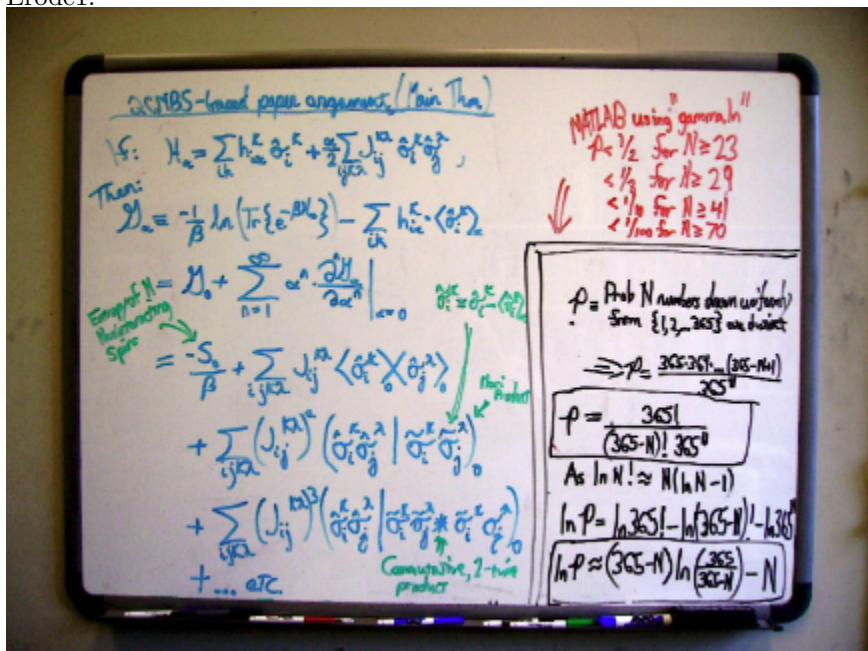 Erode1:
QCMBS-based paper argument, (Main Thm)
If: H_α = ∑_{iκ} h_{iα}^κ σ̂_i^κ + α/2 ∑_{ijκλ} J_{ij}^{κλ} σ̂_i^κ σ̂_j^λ ,
Then:
G_α = -1/β ln(Tr{e^{-βH_α}}) - ∑_{iκ} h_{iα}^κ · ⟨σ̂_i^κ⟩_α
= G_0 + ∑_{n=1}^∞ α^n · ∂^n G_α / ∂α^n |_{α=0}
Entropy of N
Noninteracting
Spins
= -S_0/β + ∑_{ijκλ} J_{ij}^{κλ} ⟨σ̂_i^κ⟩⟨σ̂_j^λ⟩_0
Mori
Product
+ ∑_{ijκλ} (J_{ij}^{κλ})^2 (σ̂_i^κ σ̂_j^λ | σ̃_i^κ σ̃_j^λ)_0
+ ∑_{ijκλ} (J_{ij}^{κλ})^3 (σ̂_i^κ σ̂_j^λ | σ̃_i^κ σ̃_j^λ * σ̃_i^κ σ_j^λ)_0
+ ... etc.
Commutative, 2-time
product
MATLAB using "gammaln"
P < 1/2 for N ≥ 23
< 1/3 for N ≥ 29
< 1/10 for N ≥ 41
< 1/100 for N ≥ 70
P = Prob N numbers drawn uniformly
from {1,2,...365} are distinct
⟹ P = 365·364·...(365-N+1) / 365^N
P = 365! / (365-N)! 365^N
As ln N! ≈ N(ln N - 1)
ln P = ln 365! - ln(365-N)! - ln 365^N
ln P ≈ (365-N) ln(365/(365-N)) - N